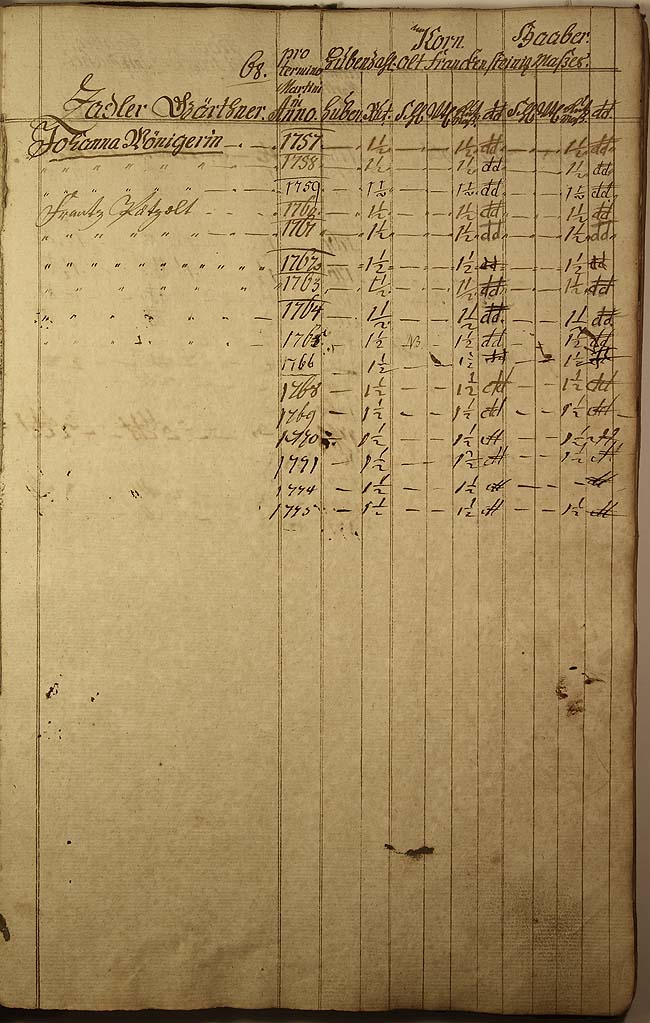 Korn. Haaber
68. pro termino Martini in Anno. Huben alt Franckensteinig Maßes.
Zadler Gärthner. Huben
Johanna Königerin — 1757 — 1½ — — 1½ dd — — 1½ dd
" " " " " " 1758 — 1½ — — 1½ dd — — 1½ dd
" " " " " " 1759 — 1½ — — 1½ dd — — 1½ dd
Frantz — 1760 — 1½ — — 1½ dd — — 1½ dd
" " " " " " 1761 — 1½ — — 1½ dd — — 1½ dd
" " " " " " 1762 — 1½ — — 1½ dd — — 1½ dd
" " " " " " 1763 — 1½ — — 1½ dd — — 1½ dd
" " " " " " 1764 — 1½ — — 1½ dd — — 1½ dd
" " " " " " 1765 — 1½ — — 1½ dd — — 1½ dd
1766 — 1½ — — 1½ dd — — 1½ dd
1768 — 1½ — — 1½ dd — — 1½ dd
1769 — 1½ — — 1½ dd — — 1½ dd
1770 — 1½ — — 1½ dd — — 1½ dd
1771 — 1½ — — 1½ dd — — 1½ dd
1774 — 1½ — — 1½ dd — — — dd
1775 — 1½ — — 1½ dd — — 1½ dd